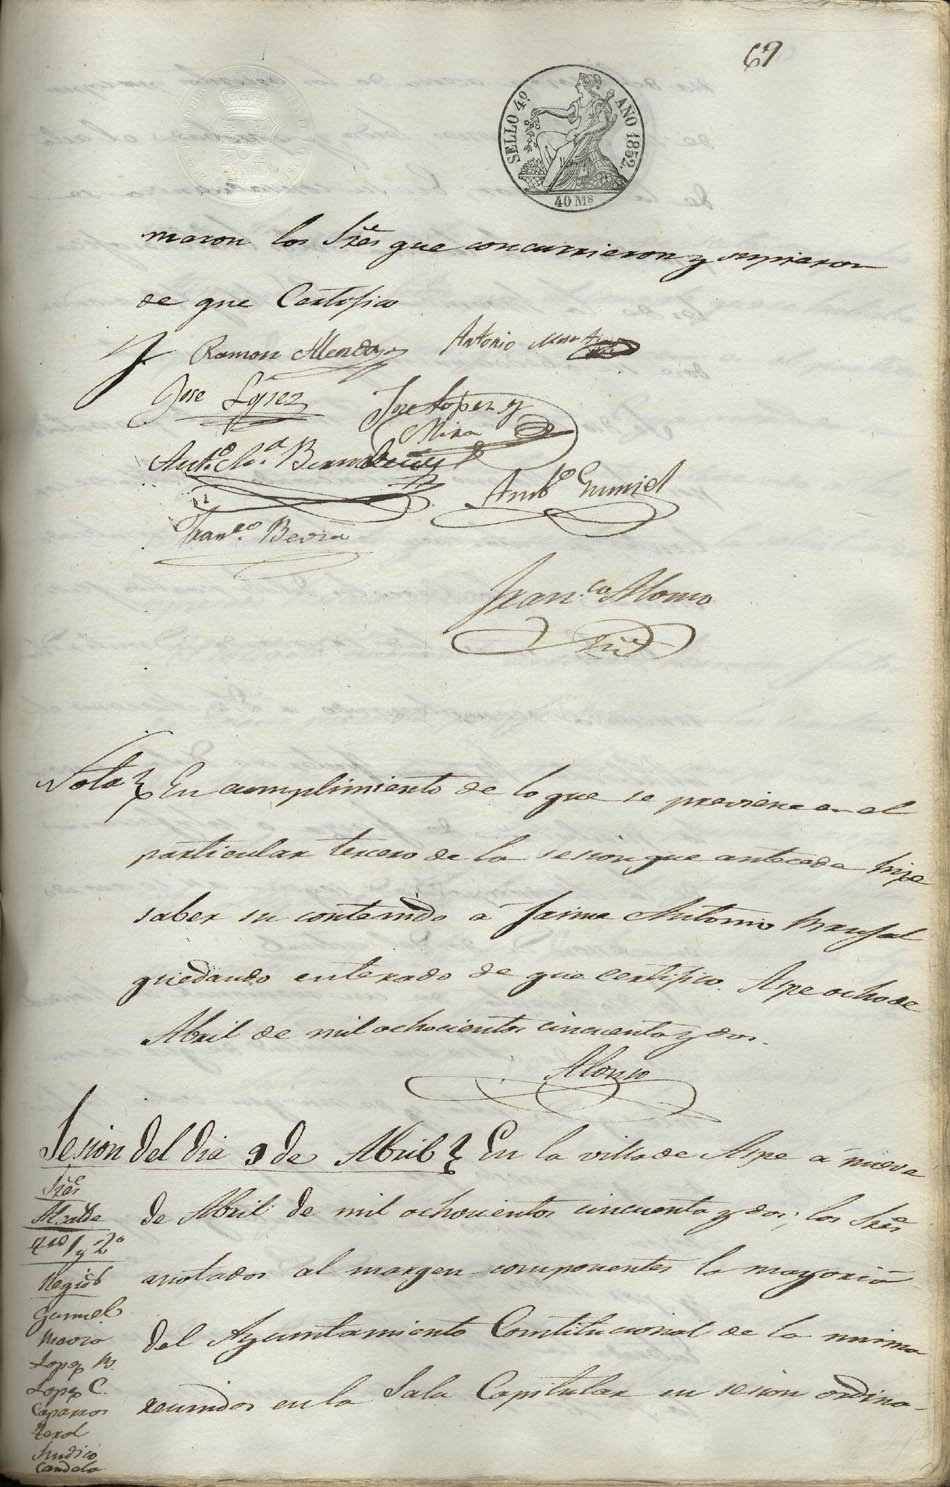 69
SELLO 4º AÑO 1852
40 Ms
maron los Sres que concurrieron y supieron
de que Certifico
Ramon Antonio
Jose Lopez Jose Lopez y
Mira
Anto Ma Bernabeu
Ambo Gumiel
Franco
Franco Alonso
Srio
Nota En cumplimiento de lo que se previene en el
particular tercero de la sesion que antecede hize
saber su contenido a Jaime Antonio
quedando enterado de que certifico. Aspe ocho de
Abril de mil ochocientos cincuenta y dos.
Alonso
Sesion del dia 9 de Abril En la villa de Aspe á nueve
de Abril de mil ochocientos cincuenta y dos; los Sres
anotados al margen componentes la mayoria
del Ayuntamiento Constitucional de la misma
reunidos en la Sala Capitular en sesion ordina-
Sres
Alcalde
1º y 2º
Regids
Gumiel
Lopez M.
Lopez C.
Caparros
Terol
Sindico
Candela